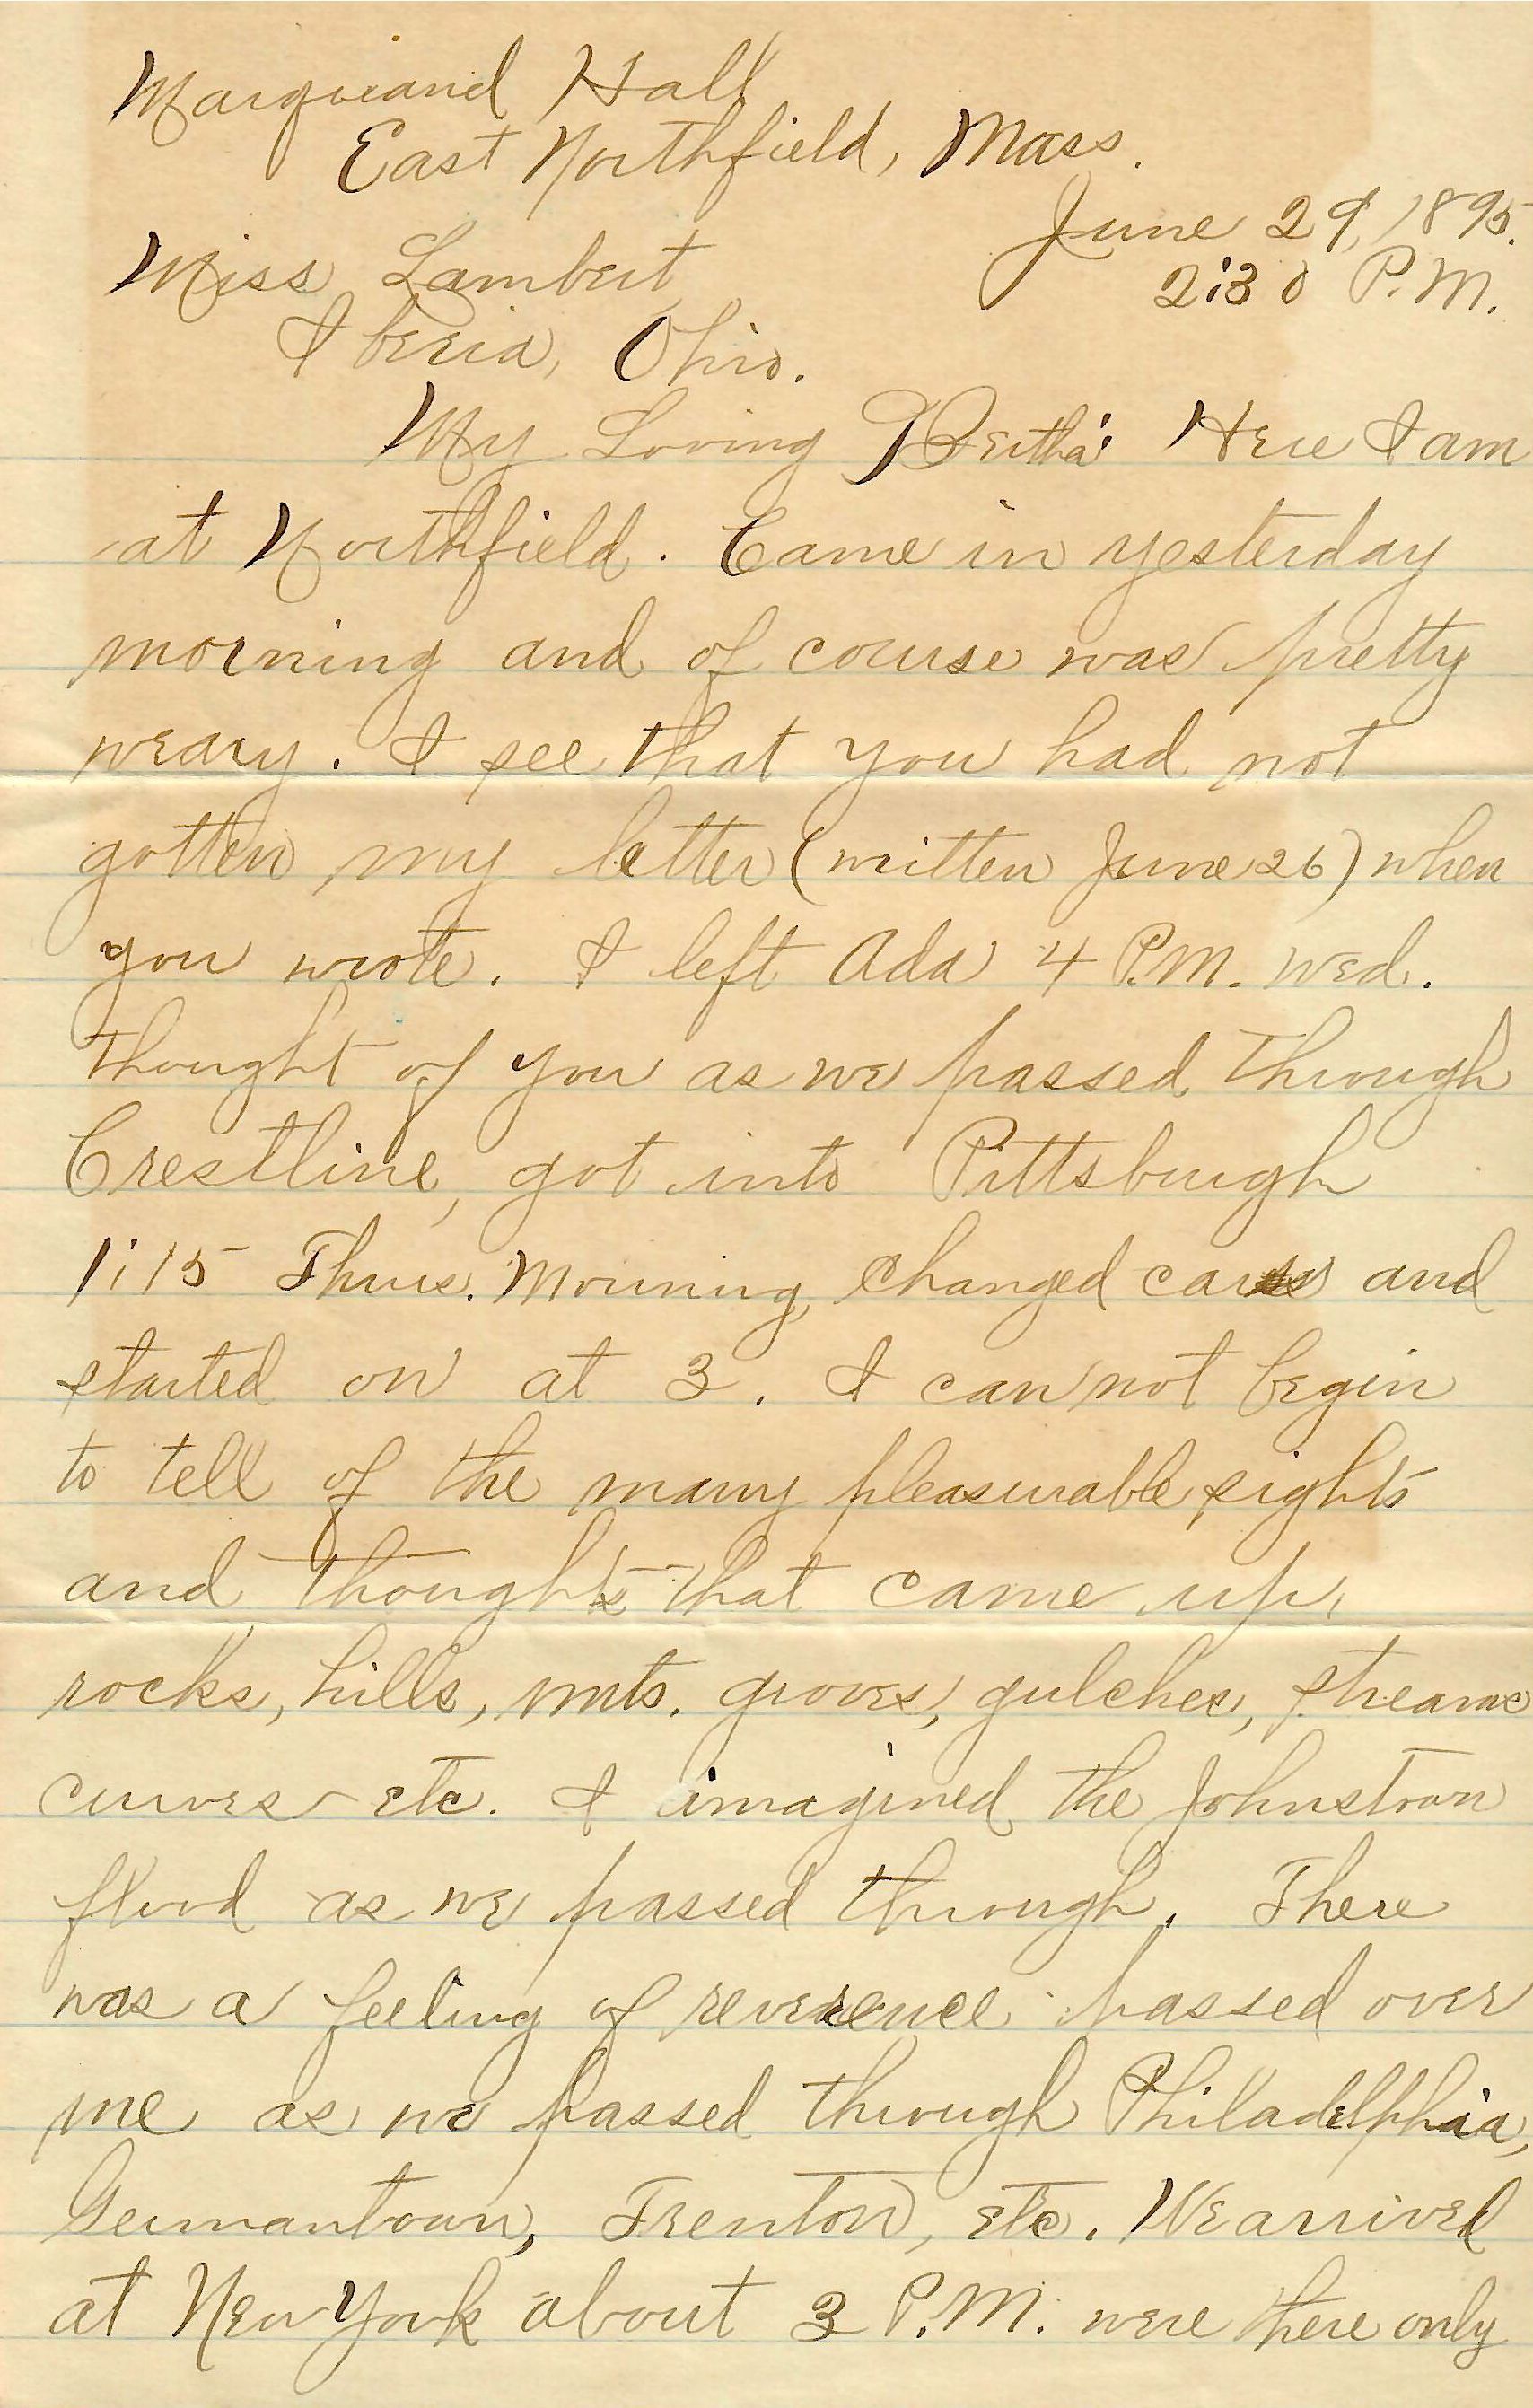 Marquand Hall
East Northfield, Mass.
June 29, 1895.
2:30 P.M.
Miss Lambert,
Iberia, Ohio.
My Loving Bertha: Here I am
at Northfield. Came in yesterday
morning and of course was pretty
weary. I see that you had not
gotten my letter (written June 26) when
you wrote. I left Ada 4 P.M. Wed.
thought of you as we passed through
Crestline, got into Pittsburgh
1:15 Thurs. Morning, changed cars and
started on at 3. I can not begin
to tell of the many pleasurable sights
and thoughts that came up,
rocks, hills, mts. groves, gulches, streams
curves etc. I imagined the Johnstown
flood as we passed through. There
was a feeling of reverence passed over
me as we passed through Philadelphia,
Germantown, Trenton, etc. We arrived
at New York about 3 P.M. were there only